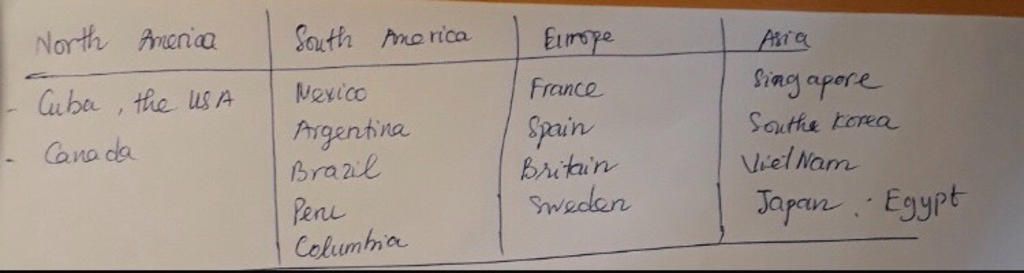 North America
- Cuba, the USA
- Canada
South America
Mexico
Argentina
Brazil
Peru
Columbia
Europe
France
Spain
Britain
Sweden
Asia
Singapore
South Korea
Viet Nam
Japan . Egypt